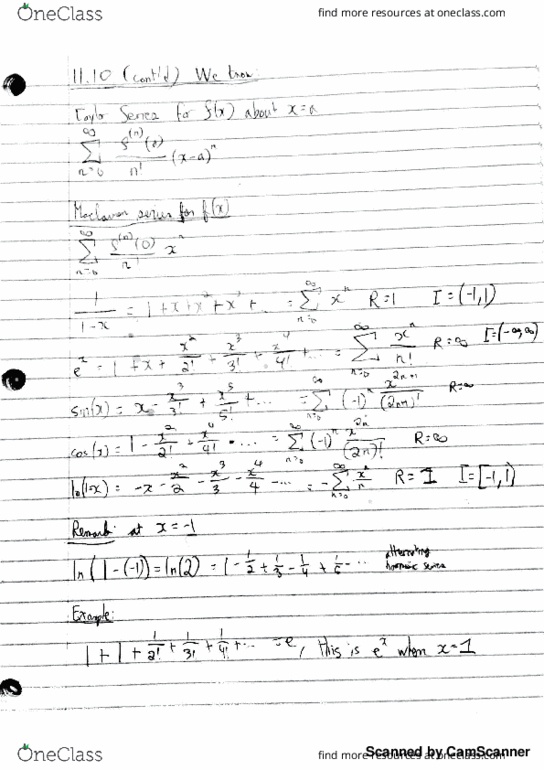 OneClass
find more resources at oneclass.com
11.10 (cont'd) We know:
Taylor Series for f(x) about x=a
∞ Σ n=0 f^(n)(a)/n! (x-a)^n
Maclauren series for f(x)
∞ Σ n=0 f^(n)(0)/n! x^n
1/(1-x) = 1+x+x^2+x^3+... = ∞ Σ n=0 x^n R=1 I=(-1,1)
e^x = 1+x+x^2/2!+x^3/3!+x^4/4!+... = ∞ Σ n=0 x^n/n! R=∞ I=(-∞,∞)
sin(x) = x-x^3/3!+x^5/5!+... = ∞ Σ n=0 (-1)^n x^(2n+1)/(2n+1)! R=∞
cos(x) = 1-x^2/2!+x^4/4!-... = ∞ Σ n=0 (-1)^n x^(2n)/(2n)! R=∞
ln(1-x) = -x-x^2/2-x^3/3-x^4/4-... = -∞ Σ n=0 x^n/n R=1 I=[-1,1)
Remark: at x=-1
ln(1-(-1))=ln(2) = 1-1/2+1/3-1/4+1/5-... alternating harmonic series
Example:
1+1+1/2!+1/3!+1/4!+... =e, this is e^x when x=1
Scanned by CamScanner
OneClass
find more resources at oneclass.com